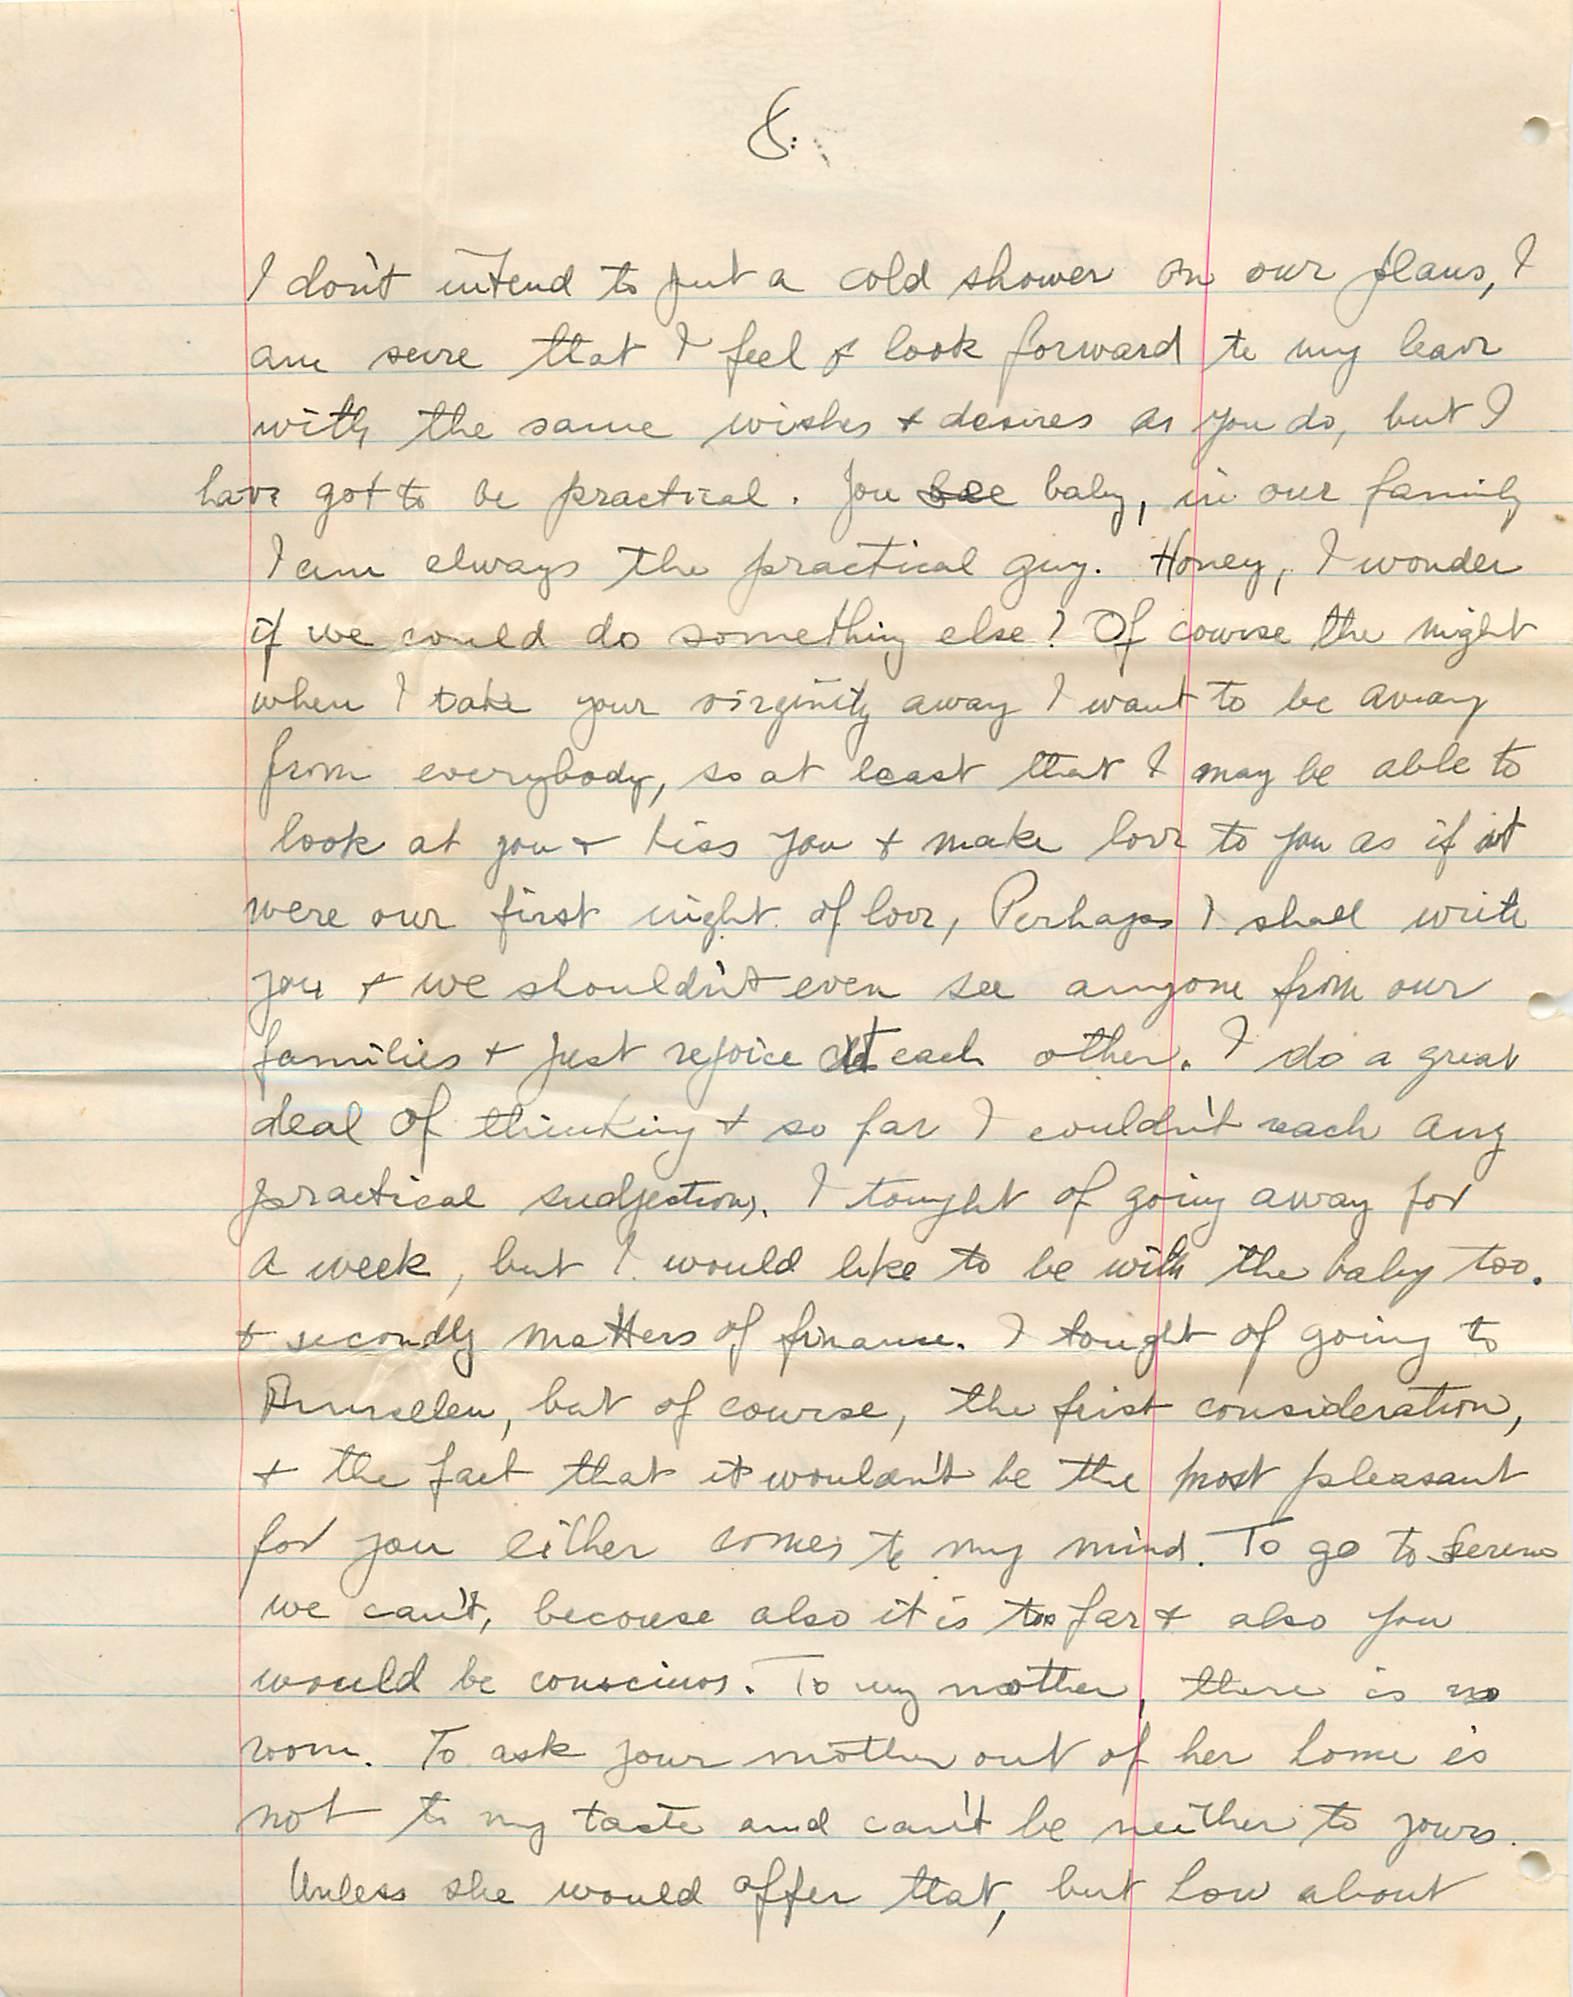 8.
I don't intend to put a cold shower on our plans, I
am sure that I feel & look forward to my leave
with the same wishes & desires as you do, but I
have got to be practical. You see baby, in our family
I am always the practical guy. Honey, I wonder
if we could do something else? Of course the night
when I take your virginity away I want to be away
from everybody, so at least that I may be able to
look at you & kiss you & make love to you as if it
were our first night of love, Perhaps I shall write
you & we shouldn't even see anyone from our
families & just rejoice at each other. I do a great
deal of thinking & so far I couldn't reach any
practical sudjections. I tought of going away for
a week, but I would like to be with the baby too.
& secondly matters of finance. I tought of going to
but of course, the first consideration,
& the fact that it wouldn't be the most pleasant
for you either comes to my mind. To go to
we can't, becouse also it is too far & also you
would be conscious. To my mother, there is no
room. To ask your mother out of her home is
not to my taste and can't be neither to yours.
Unless she would offer that, but how about